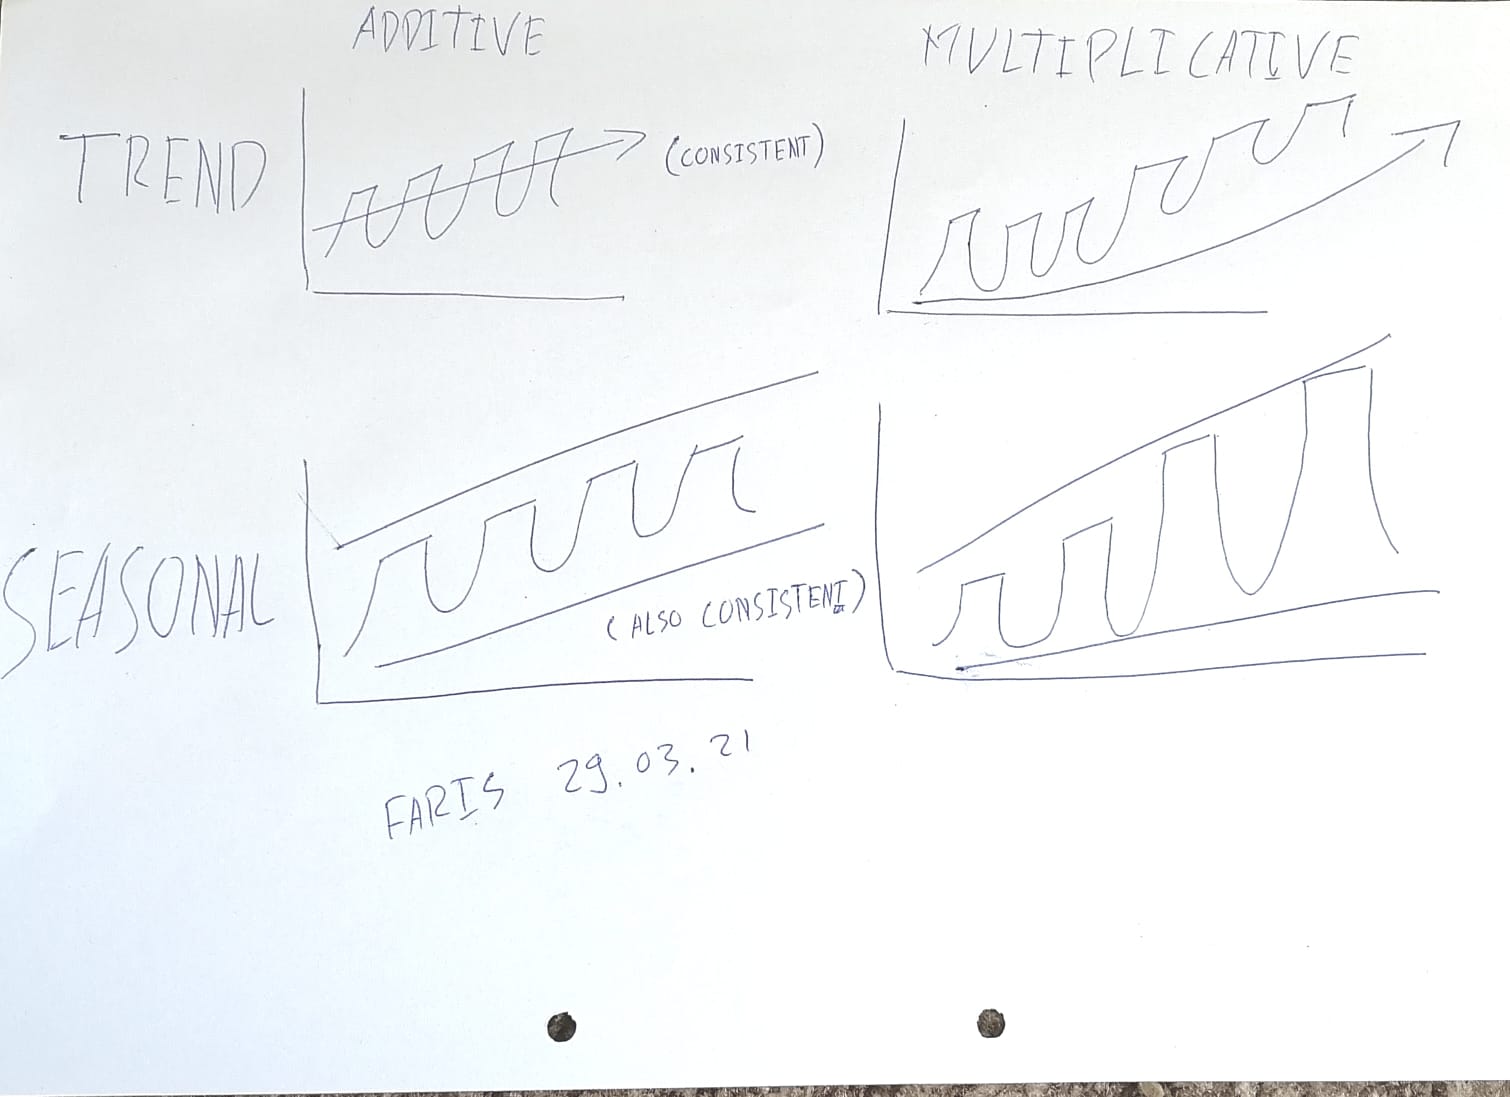 ADDITIVE
MULTIPLICATIVE
TREND
(CONSISTENT)
SEASONAL
(ALSO CONSISTENT)
FARIS 29.03.21